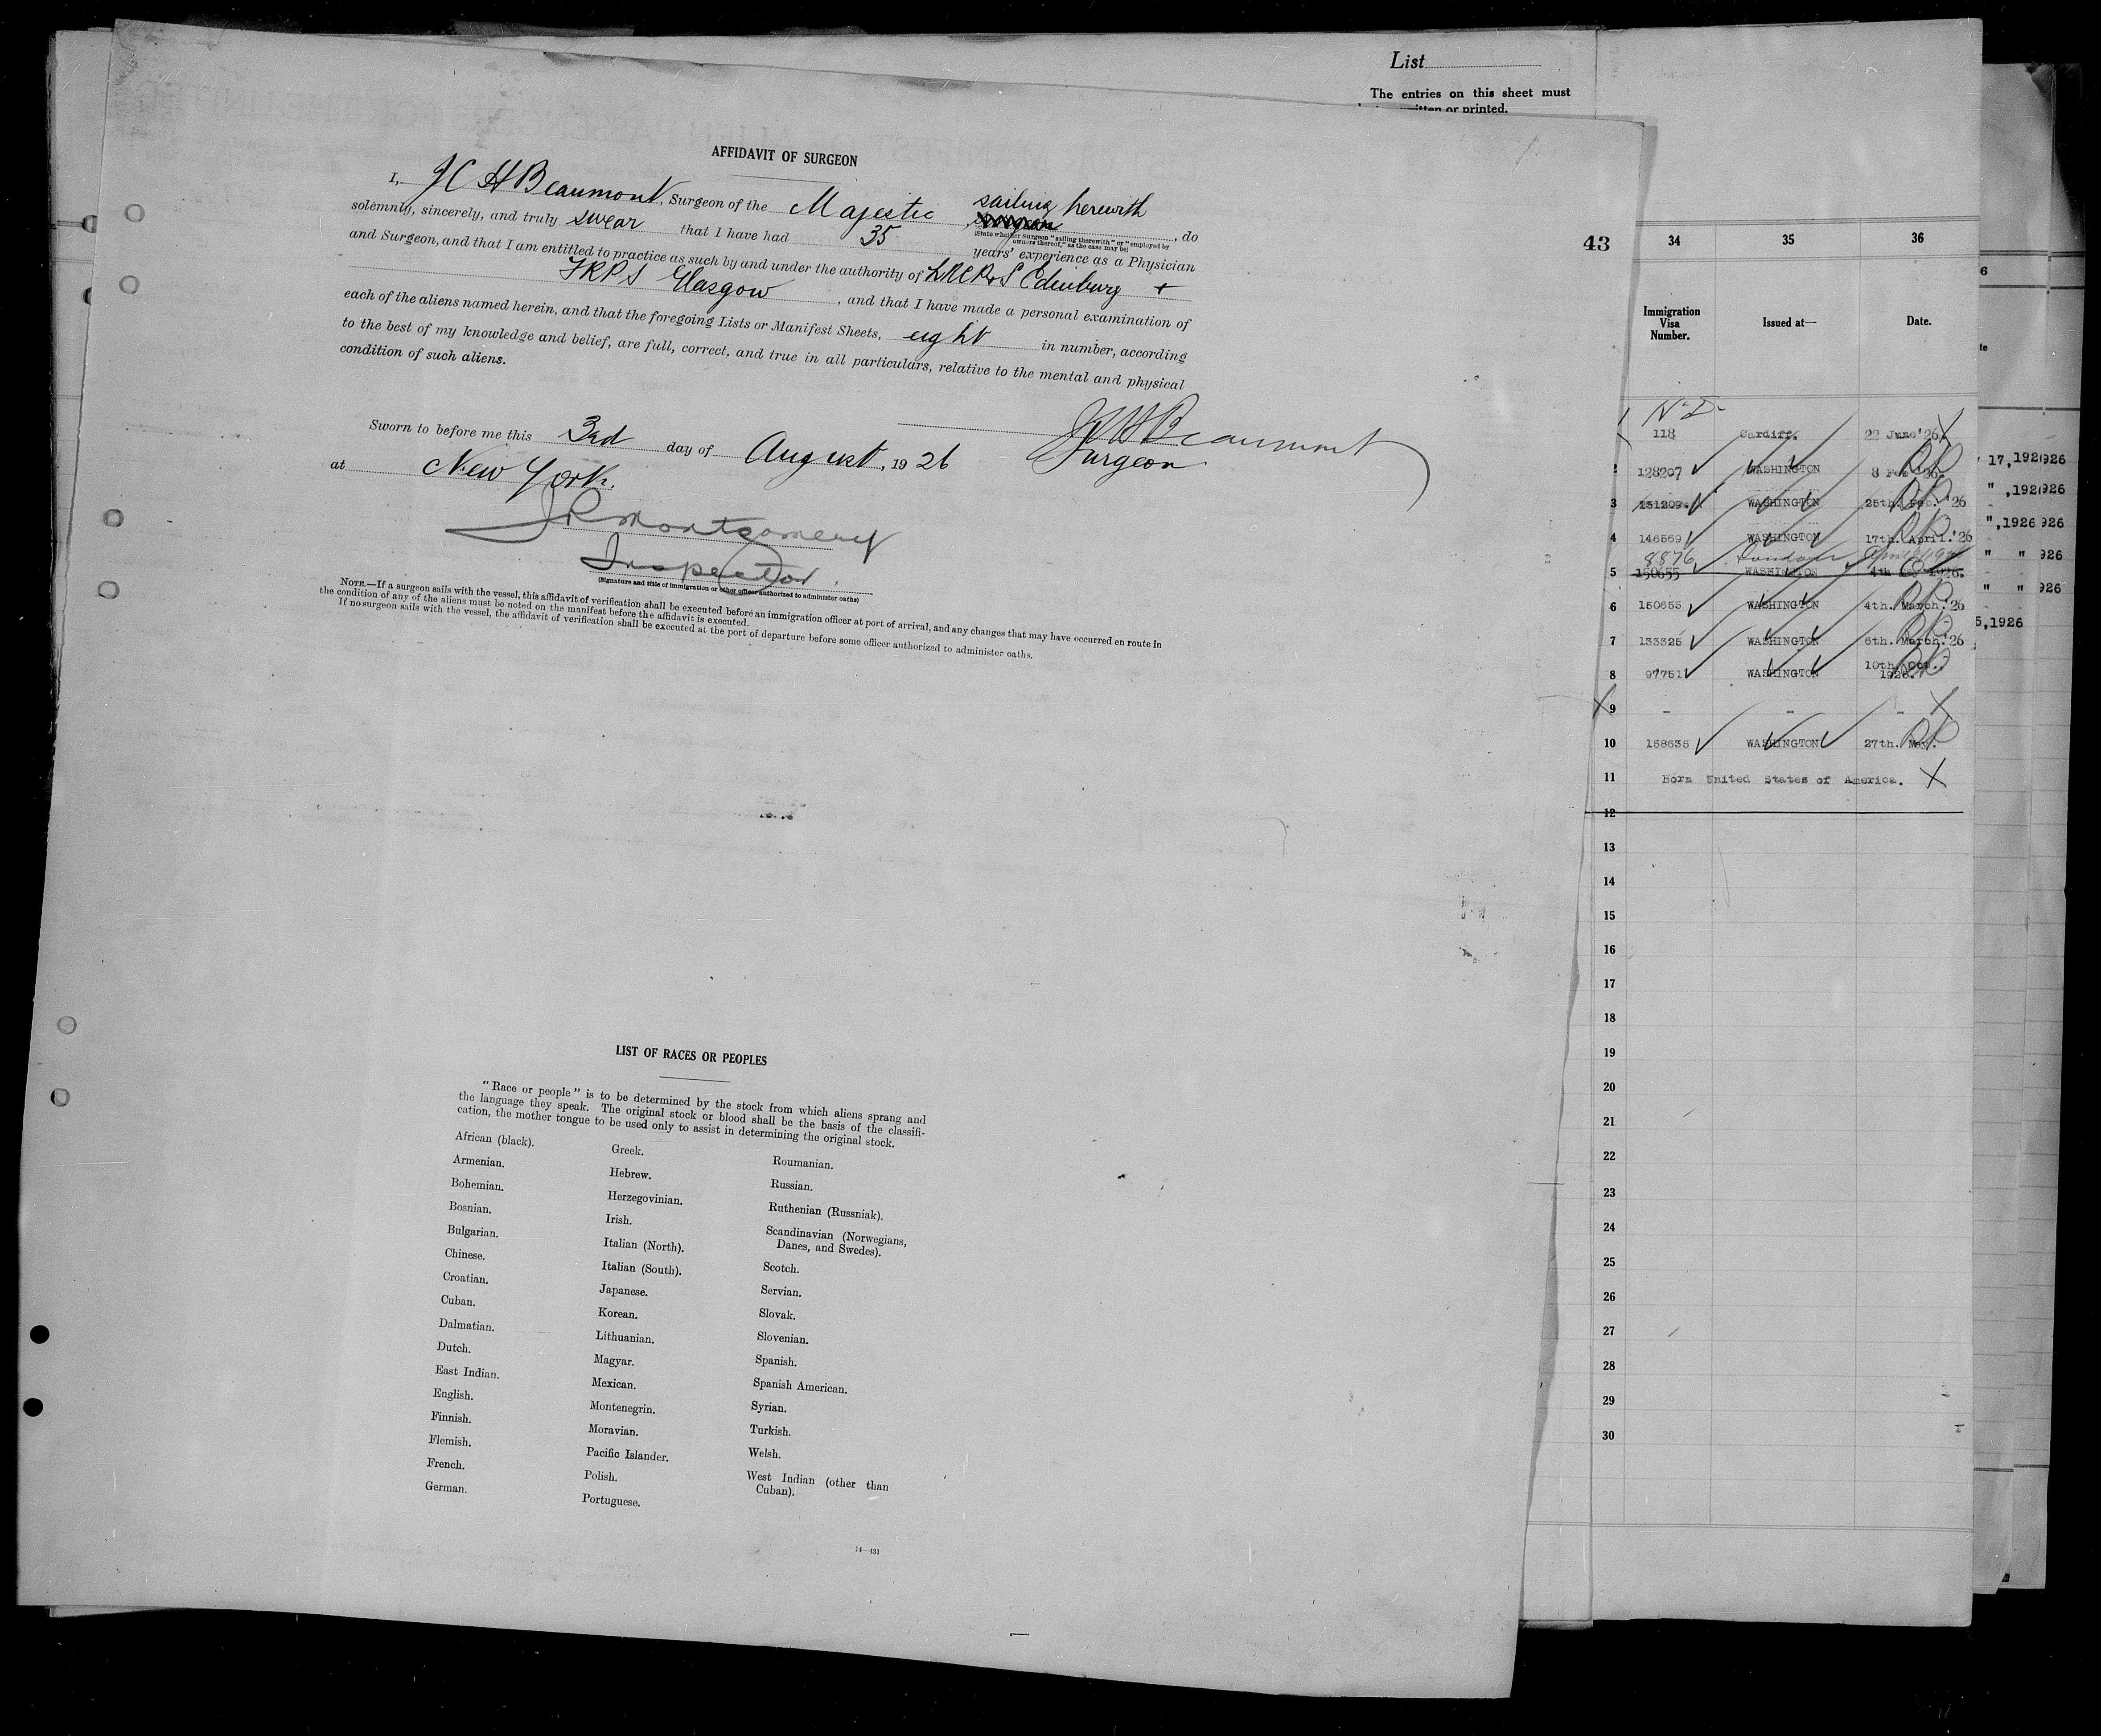 List
The entries on this sheet must
or printed.
AFFIDAVIT OF SURGEON
I, J C H Beaumont, Surgeon of the Majestic sailing herewith, do
(State whether Surgeon "sailing therewith" or "employed by
owners thereof," as the case may be)
solemnly, sincerely, and truly swear that I have had 35 years' experience as a Physician
and Surgeon, and that I am entitled to practice as such by and under the authority of LRCP&S Edinburg +
FRPS Glasgow, and that I have made a personal examination of
each of the aliens named herein, and that the foregoing Lists or Manifest Sheets, eight in number, according
to the best of my knowledge and belief, are full, correct, and true in all particulars, relative to the mental and physical
condition of such aliens.
JCHBeaumont
Surgeon
Sworn to before me this 3rd day of August, 1926
at New York.
JR Montgomery
Inspector.
(Signature and title of immigration or other officer authorized to administer oaths)
NOTE.—If a surgeon sails with the vessel, this affidavit of verification shall be executed before an immigration officer at port of arrival, and any changes that may have occurred en route in
the condition of any of the aliens must be noted on the manifest before the affidavit is executed.
If no surgeon sails with the vessel, the affidavit of verification shall be executed at the port of departure before some officer authorized to administer oaths.
LIST OF RACES OR PEOPLES
"Race or people" is to be determined by the stock from which aliens sprang and
the language they speak. The original stock or blood shall be the basis of the classifi-
cation, the mother tongue to be used only to assist in determining the original stock.
African (black).
Armenian.
Bohemian.
Bosnian.
Bulgarian.
Chinese.
Croatian.
Cuban.
Dalmatian.
Dutch.
East Indian.
English.
Finnish.
Flemish.
French.
German.
Greek.
Hebrew.
Herzegovinian.
Irish.
Italian (North).
Italian (South).
Japanese.
Korean.
Lithuanian.
Magyar.
Mexican.
Montenegrin.
Moravian.
Pacific Islander.
Polish.
Portuguese.
Roumanian.
Russian.
Ruthenian (Russniak).
Scandinavian (Norwegians,
Danes, and Swedes).
Scotch.
Servian.
Slovak.
Slovenian.
Spanish.
Spanish American.
Syrian.
Turkish.
Welsh.
West Indian (other than
Cuban).
14—431
43
34 35 36
Immigration
Visa
Number.
Issued at—
Date.
118 Cardiff. 22 June'26
2 128207 WASHINGTON 8 Feb '26.
3 151209. WASHINGTON 25th. Feb. '26
4 146569 WASHINGTON 17th. April.'26
8876 London
5 150655 WASHINGTON 4th 1926.
6 150655 WASHINGTON 4th. March.'26
7 133325 WASHINGTON 6th. March.'26
8 97751 WASHINGTON 10th. Oct.
1925.
9 - - -
10 158635 WASHINGTON 27th. May.
11 Born United States of America.
12
13
14
15
16
17
18
19
20
21
22
23
24
25
26
27
28
29
30
17, 192 926
" ,192 926
" ,1926 926
" " 926
" " 926
5,1926